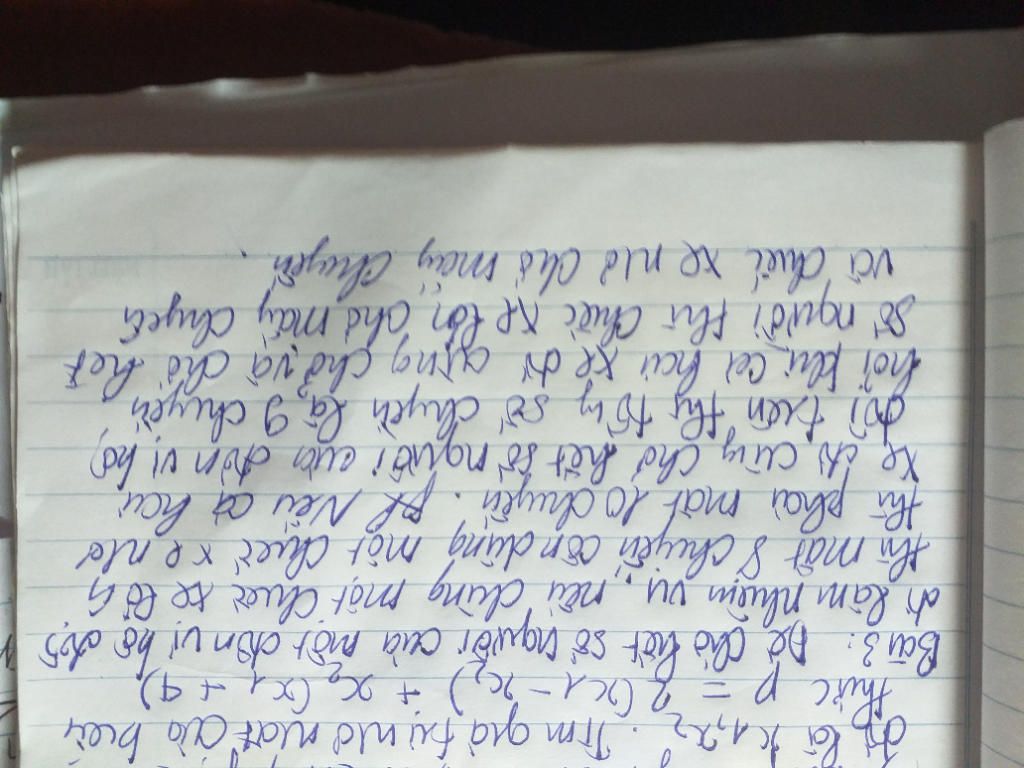 đó là x1, x2. Tìm giá trị nhỏ nhất của biểu
thức P = 2(x1 - x2) + x2(x1 + 4)
Bài 3: Để chở hết số người của một đơn vị bộ đội
đi làm nhiệm vụ, nếu dùng một chiếc xe lớn
thì mất 8 chuyến còn dùng một chiếc xe nhỏ
thì phải mất 10 chuyến. Nếu cả hai
xe đi cùng chở hết số người của đơn vị bộ
đội trên thì tổng số chuyến là 9 chuyến
hỏi khi cả hai xe đi cùng chở và chở hết
số người thì chiếc xe lớn chở mấy chuyến
và chiếc xe nhỏ chở mấy chuyến.